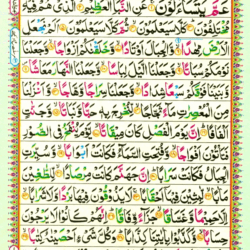 عَمَّ يَتَسَآءَلُوْنَ ۚ عَنِ النَّبَاِ الْعَظِيْمِ ۙ الَّذِىْ هُمْ فِيْهِ
مُخْتَلِفُوْنَ ؕ كَلَّا سَيَعْلَمُوْنَ ۙ ثُمَّ كَلَّا سَيَعْلَمُوْنَ اَلَمْ نَجْعَلِ
الْاَرْضَ مِهٰدًا ۙ وَّالْجِبَالَ اَوْتَادًا ۙ وَّخَلَقْنٰكُمْ اَزْوَاجًا ۙ وَّجَعَلْنَا
نَوْمَكُمْ سُبَاتًا ۙ وَّجَعَلْنَا الَّيْلَ لِبَاسًا ۙ وَّجَعَلْنَا النَّهَارَ مَعَاشًا
وَّبَنَيْنَا فَوْقَكُمْ سَبْعًا شِدَادًا ۙ وَّجَعَلْنَا سِرَاجًا وَّهَّاجًا ۙ وَّاَنْزَلْنَا
مِنَ الْمُعْصِرٰتِ مَآءً ثَجَّاجًا ۙ لِّنُخْرِجَ بِهٖ حَبًّا وَّنَبَاتًا ۙ وَّجَنّٰتٍ
اَلْفَافًا ؕ اِنَّ يَوْمَ الْفَصْلِ كَانَ مِيْقَاتًا ۙ يَّوْمَ يُنْفَخُ فِى الصُّوْرِ
فَتَاْتُوْنَ اَفْوَاجًا ۙ وَّفُتِحَتِ السَّمَآءُ فَكَانَتْ اَبْوَابًا ۙ وَّسُيِّرَتِ
الْجِبَالُ فَكَانَتْ سَرَابًا ؕ اِنَّ جَهَنَّمَ كَانَتْ مِرْصَادًا ۙ لِّلطَّاغِيْنَ
مَاٰبًا ۙ لّٰبِثِيْنَ فِيْهَآ اَحْقَابًا ۚ لَا يَذُوْقُوْنَ فِيْهَا بَرْدًا وَّلَا شَرَابًا ۙ
اِلَّا حَمِيْمًا وَّغَسَّاقًا ۙ جَزَآءً وِّفَاقًا ؕ اِنَّهُمْ كَانُوْا لَا يَرْجُوْنَ
حِسَابًا ۙ وَّكَذَّبُوْا بِاٰيٰتِنَا كِذَّابًا ؕ وَكُلَّ شَىْءٍ اَحْصَيْنٰهُ كِتٰبًا